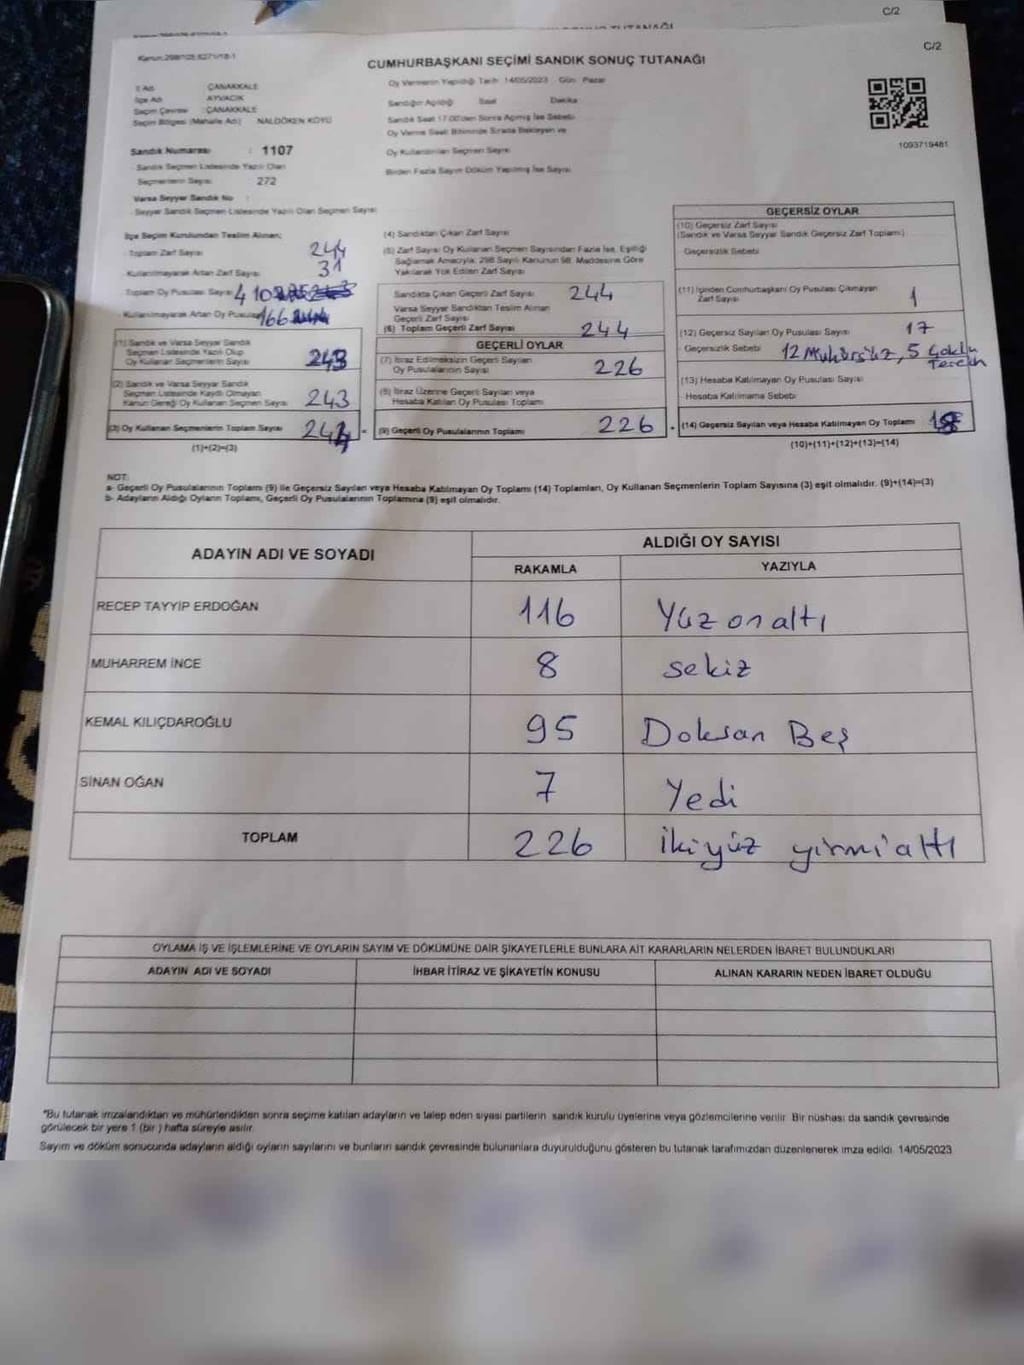 C/2
C/2
Kanun:298/105,6271/18-1
CUMHURBAŞKANI SEÇİMİ SANDIK SONUÇ TUTANAĞI
Oy Vermenin Yapıldığı Tarih 14/05/2023 Gün: Pazar
İl Adı : ÇANAKKALE
İlçe Adı : AYVACIK
Seçim Çevresi : ÇANAKKALE
Seçim Bölgesi (Mahalle Adı) : NALDÖKEN KÖYÜ
Sandığın Açıldığı Saat Dakika
Sandık Saat 17.00'den Sonra Açılmış İse Sebebi
Oy Verme Saati Bitiminde Sırada Bekleyen ve
Oy Kullandırılan Seçmen Sayısı
Birden Fazla Sayım Döküm Yapılmış İse Sayısı
1093719481
Sandık Numarası : 1107
Sandık Seçmen Listesinde Yazılı Olan
Seçmenlerin Sayısı 272
Varsa Seyyar Sandık No :
Seyyar Sandık Seçmen Listesinde Yazılı Olan Seçmen Sayısı
İlçe Seçim Kurulundan Teslim Alınan;
Toplam Zarf Sayısı 244
Kullanılmayarak Artan Zarf Sayısı 31
Toplam Oy Pusulası Sayısı 410
Kullanılmayarak Artan Oy Pusulası 166
(1) Sandık ve Varsa Seyyar Sandık
Seçmen Listesinde Yazılı Olup
Oy Kullanan Seçmenlerin Sayısı 243
(2) Sandık ve Varsa Seyyar Sandık
Seçmen Listesinde Kayıtlı Olmayan
Kanun Gereği Oy Kullanan Seçmen Sayısı 243
(3) Oy Kullanan Seçmenlerin Toplam Sayısı 244
(1)+(2)=(3)
(4) Sandıktan Çıkan Zarf Sayısı
(5) Zarf Sayısı Oy Kullanan Seçmen Sayısından Fazla İse, Eşitliği
Sağlamak Amacıyla, 298 Sayılı Kanunun 98. Maddesine Göre
Yakılarak Yok Edilen Zarf Sayısı
Sandıkta Çıkan Geçerli Zarf Sayısı 244
Varsa Seyyar Sandıktan Teslim Alınan
Geçerli Zarf Sayısı
(6) Toplam Geçerli Zarf Sayısı 244
GEÇERLİ OYLAR
(7) İtiraz Edilmeksizin Geçerli Sayılan
Oy Pusulalarının Sayısı 226
(8) İtiraz Üzerine Geçerli Sayılan veya
Hesaba Katılan Oy Pusulası Toplamı
(9) Geçerli Oy Pusulalarının Toplamı 226
GEÇERSİZ OYLAR
(10) Geçersiz Zarf Sayısı
(Sandık ve Varsa Seyyar Sandık Geçersiz Zarf Toplamı)
Geçersizlik Sebebi
(11) İçinden Cumhurbaşkanı Oy Pusulası Çıkmayan
Zarf Sayısı 1
(12) Geçersiz Sayılan Oy Pusulası Sayısı 17
Geçersizlik Sebebi 12 Mühürsüz, 5 Çoklu
Tercih
(13) Hesaba Katılmayan Oy Pusulası Sayısı
Hesaba Katılmama Sebebi
(14) Geçersiz Sayılan veya Hesaba Katılmayan Oy Toplamı 18
(10)+(11)+(12)+(13)=(14)
NOT:
a- Geçerli Oy Pusulalarının Toplamı (9) ile Geçersiz Sayılan veya Hesaba Katılmayan Oy Toplamı (14) Toplamları, Oy Kullanan Seçmenlerin Toplam Sayısına (3) eşit olmalıdır. (9)+(14)=(3)
b- Adayların Aldığı Oyların Toplamı, Geçerli Oy Pusulalarının Toplamına (9) eşit olmalıdır.
ADAYIN ADI VE SOYADI
ALDIĞI OY SAYISI
RAKAMLA YAZIYLA
RECEP TAYYİP ERDOĞAN 116 Yüz onaltı
MUHARREM İNCE 8 sekiz
KEMAL KILIÇDAROĞLU 95 Doksan Beş
SİNAN OĞAN 7 Yedi
TOPLAM 226 ikiyüz yirmi altı
OYLAMA İŞ VE İŞLEMLERİNE VE OYLARIN SAYIM VE DÖKÜMÜNE DAİR ŞİKAYETLERLE BUNLARA AİT KARARLARIN NELERDEN İBARET BULUNDUKLARI
ADAYIN ADI VE SOYADI İHBAR İTİRAZ VE ŞİKAYETİN KONUSU ALINAN KARARIN NEDEN İBARET OLDUĞU
*Bu tutanak imzalandıktan ve mühürlendikten sonra seçime katılan adayların ve talep eden siyasi partilerin sandık kurulu üyelerine veya gözlemcilerine verilir. Bir nüshası da sandık çevresinde
görülecek bir yere 1 (bir ) hafta süreyle asılır.
Sayım ve döküm sonucunda adayların aldığı oyların sayılarını ve bunların sandık çevresinde bulunanlara duyurulduğunu gösteren bu tutanak tarafımızdan düzenlenerek imza edildi. 14/05/2023